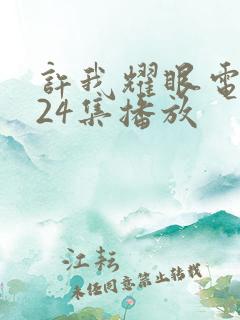 許我耀眼電
24集播放
江耘
未經同意禁止轉載